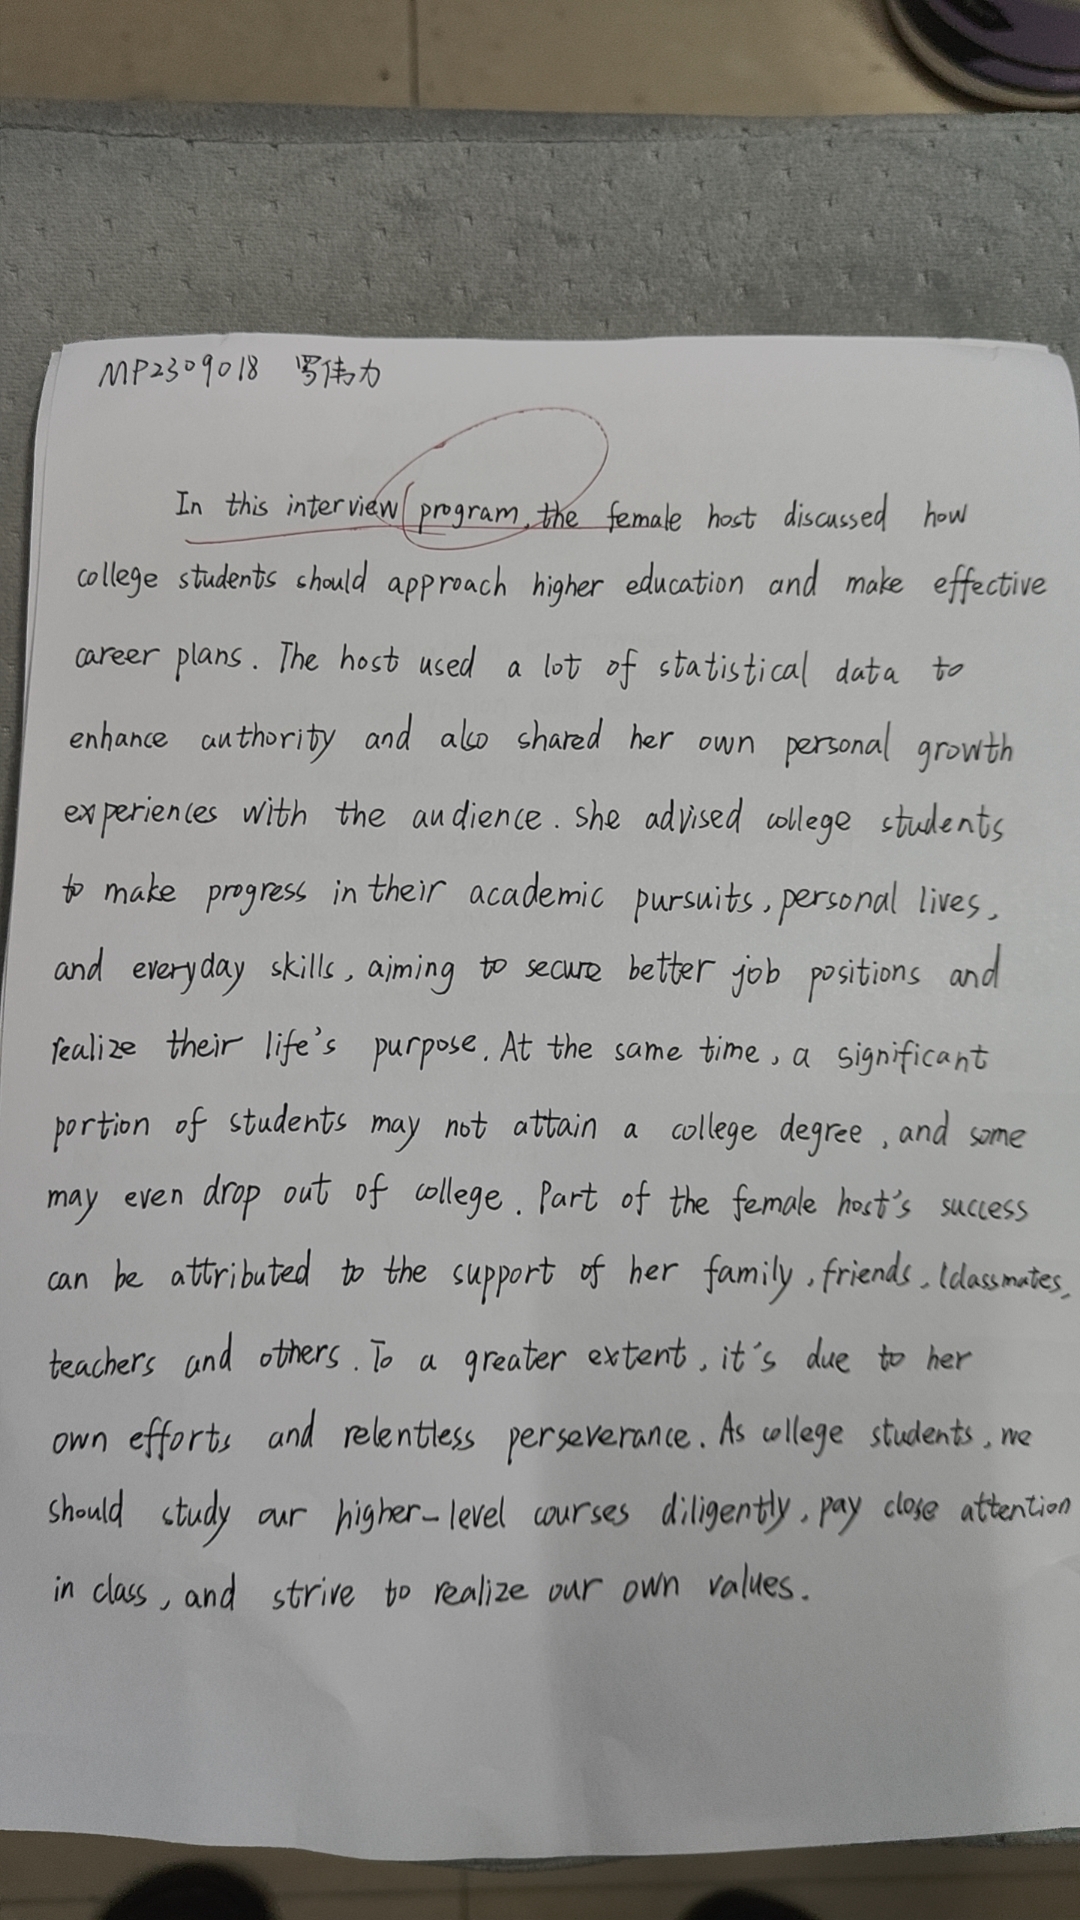 MP2309018 罗伟力
In this interview program, the female host discussed how
college students should approach higher education and make effective
career plans. The host used a lot of statistical data to
enhance authority and also shared her own personal growth
experiences with the audience. She advised college students
to make progress in their academic pursuits, personal lives,
and everyday skills, aiming to secure better job positions and
realize their life's purpose. At the same time, a significant
portion of students may not attain a college degree, and some
may even drop out of college. Part of the female host's success
can be attributed to the support of her family, friends, classmates,
teachers and others. To a greater extent, it's due to her
own efforts and relentless perseverance. As college students, we
should study our higher-level courses diligently, pay close attention
in class, and strive to realize our own values.